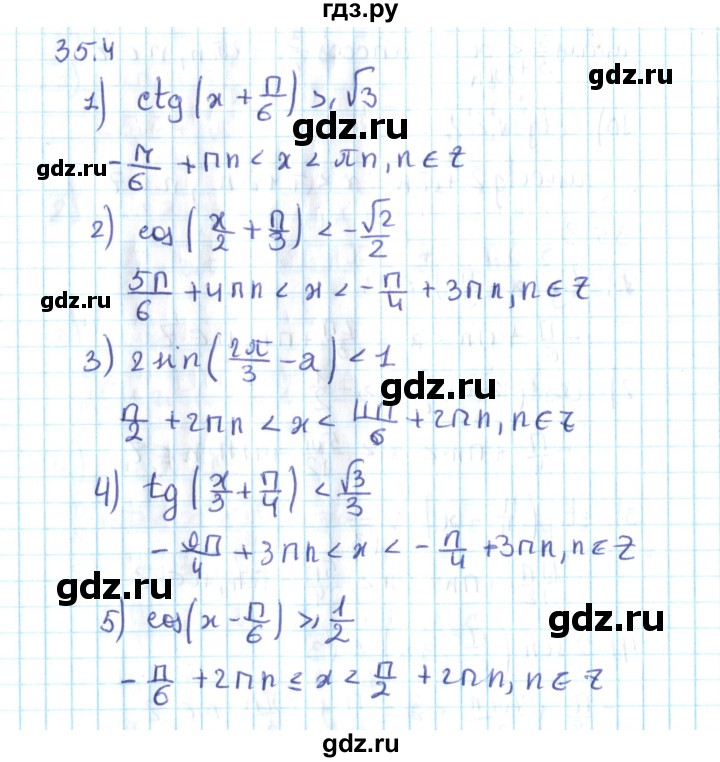 гдз.ру
35.4
1) ctg(x + π/6) ⩾ √3
gdz.ru
gdz.ru
gdz.ru
-π/6 + πn < x < πn, n ∈ Z
2) cos(x/2 + π/3) < -√2/2
gdz.ru
gdz.ru
5π/6 + 4πn < x < -π/4 + 3πn, n ∈ Z
3) 2 sin(2π/3 - a) < 1
gdz.ru
π/2 + 2πn < x < 11π/6 + 2πn, n ∈ Z
4) tg(x/3 + π/4) < √3/3
gdz.ru
-9π/4 + 3πn < x < -π/4 + 3πn, n ∈ Z
gdz.ru
5) cos(x - π/6) ⩾ 1/2
gdz.ru
-π/6 + 2πn ≤ x ≤ π/2 + 2πn, n ∈ Z
gdz.ru